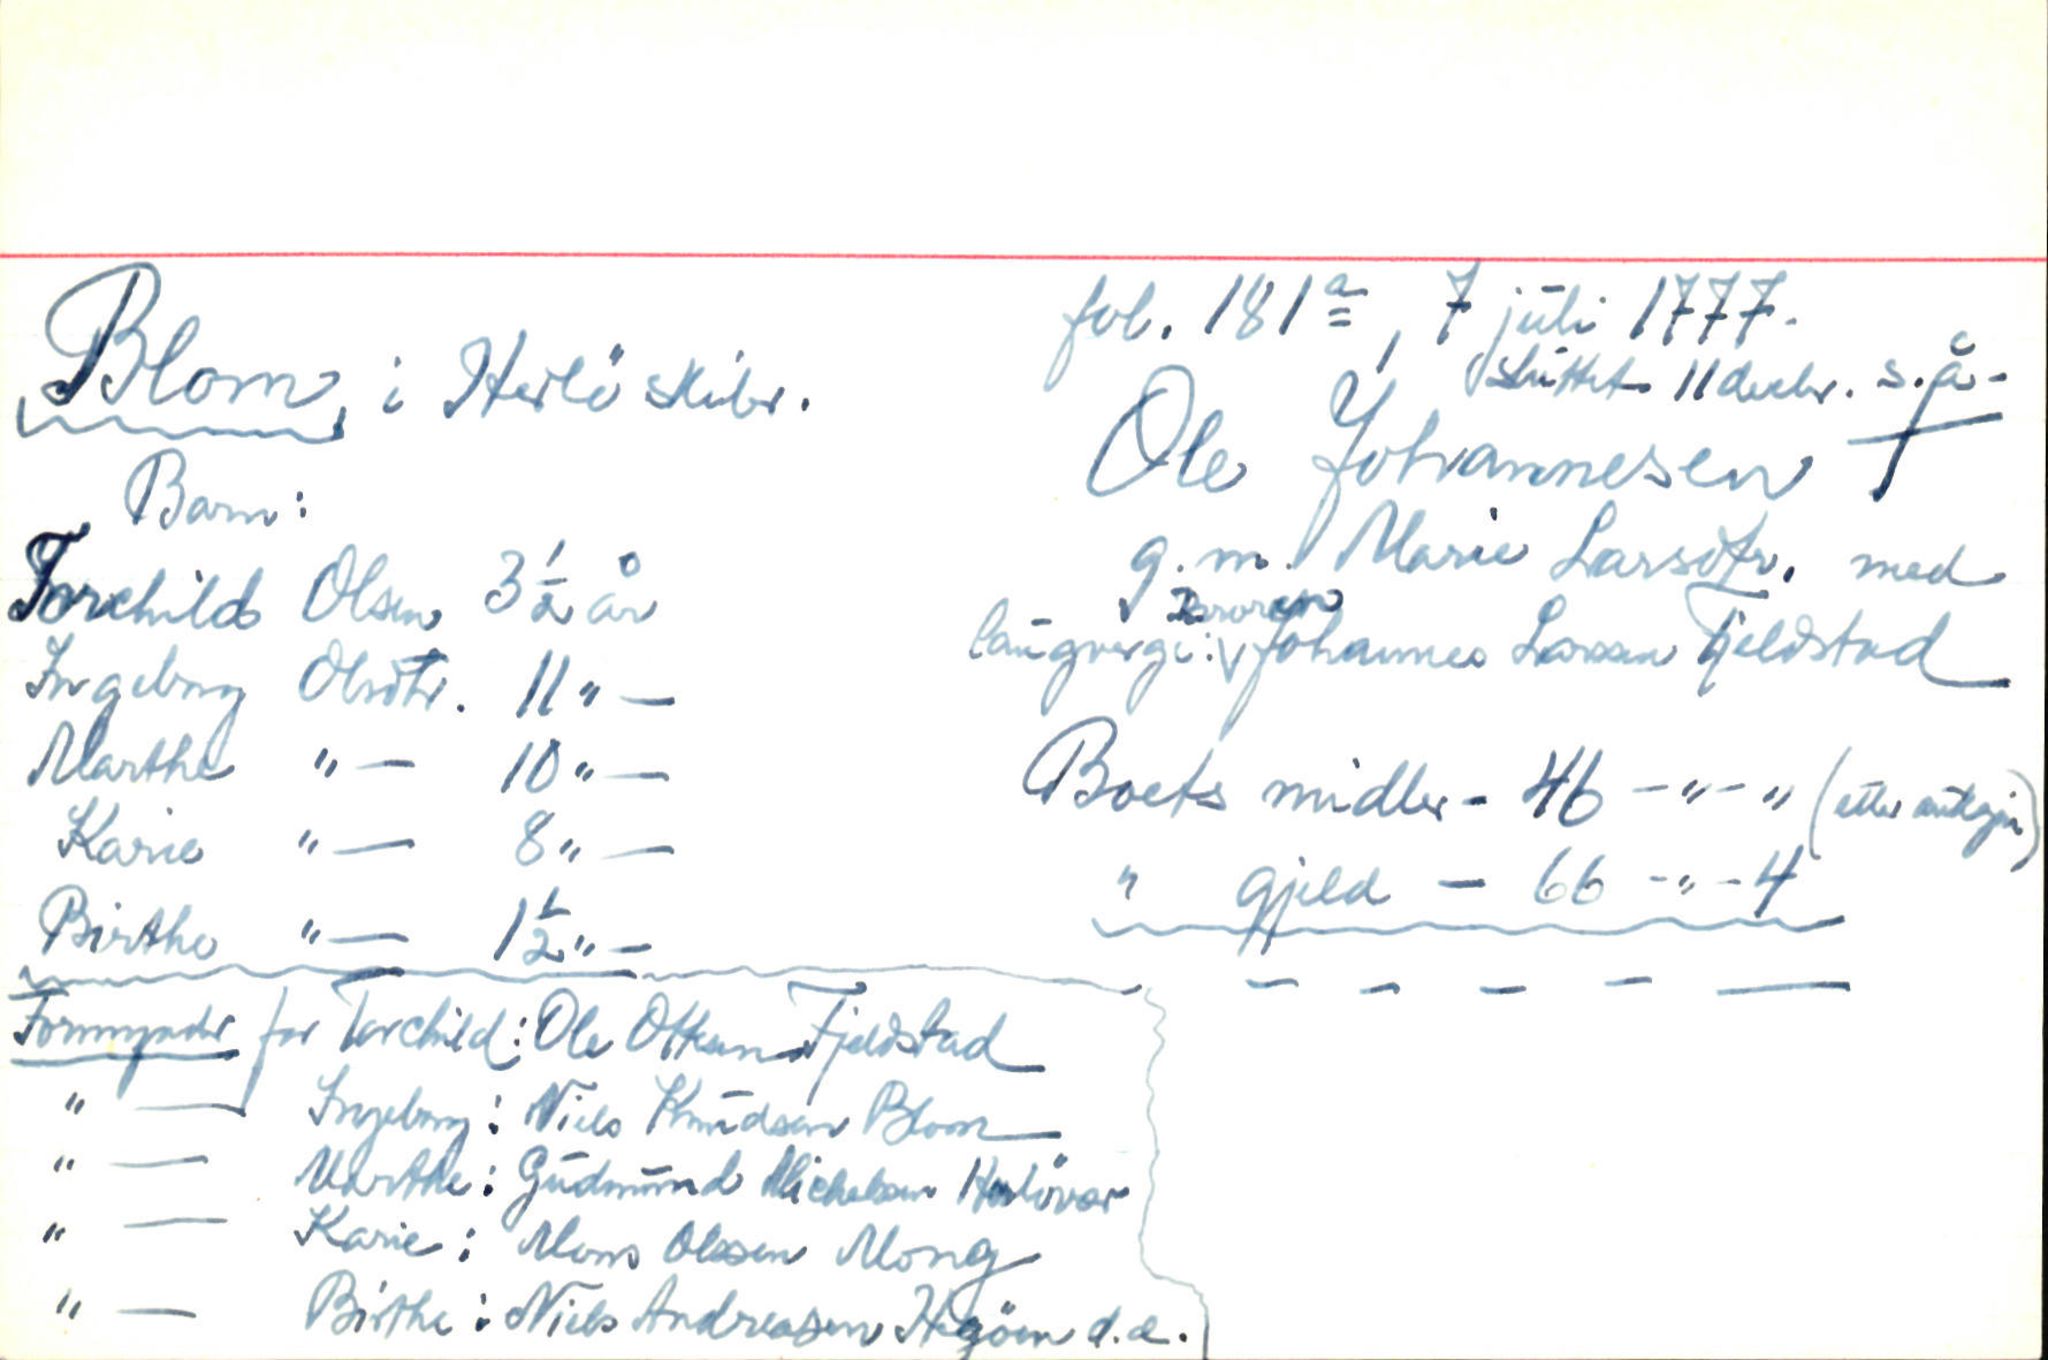 fol. 181a, 7 juli 1777.
sluttet 11 decbr. s.å.
Blom, i Herlö skibr.
Ole Johannesen
g. m. Marie Larsdtr. med
laugverge: broren Johannes Larsen Fjeldstad
Boets midler - 46 -"-" (etter
" gjeld - 66 -"-4
Barn:
Torchild Olsen 3 1/2 år
Ingeborg Olsdtr. 11 " —
Marthe " — 10 " —
Karie " — 8 " —
Birthe " — 1 1/2 " —
Formynder for Torchild: Ole Ottesen Fjeldstad
" — Ingeborg: Niels Knudsen Blom
" — Marthe: Gudmund Michelsen Herlövær
" — Karie: Mons Olssen Mong
" — Birthe: Niels Andreasen Hegöen d.e.